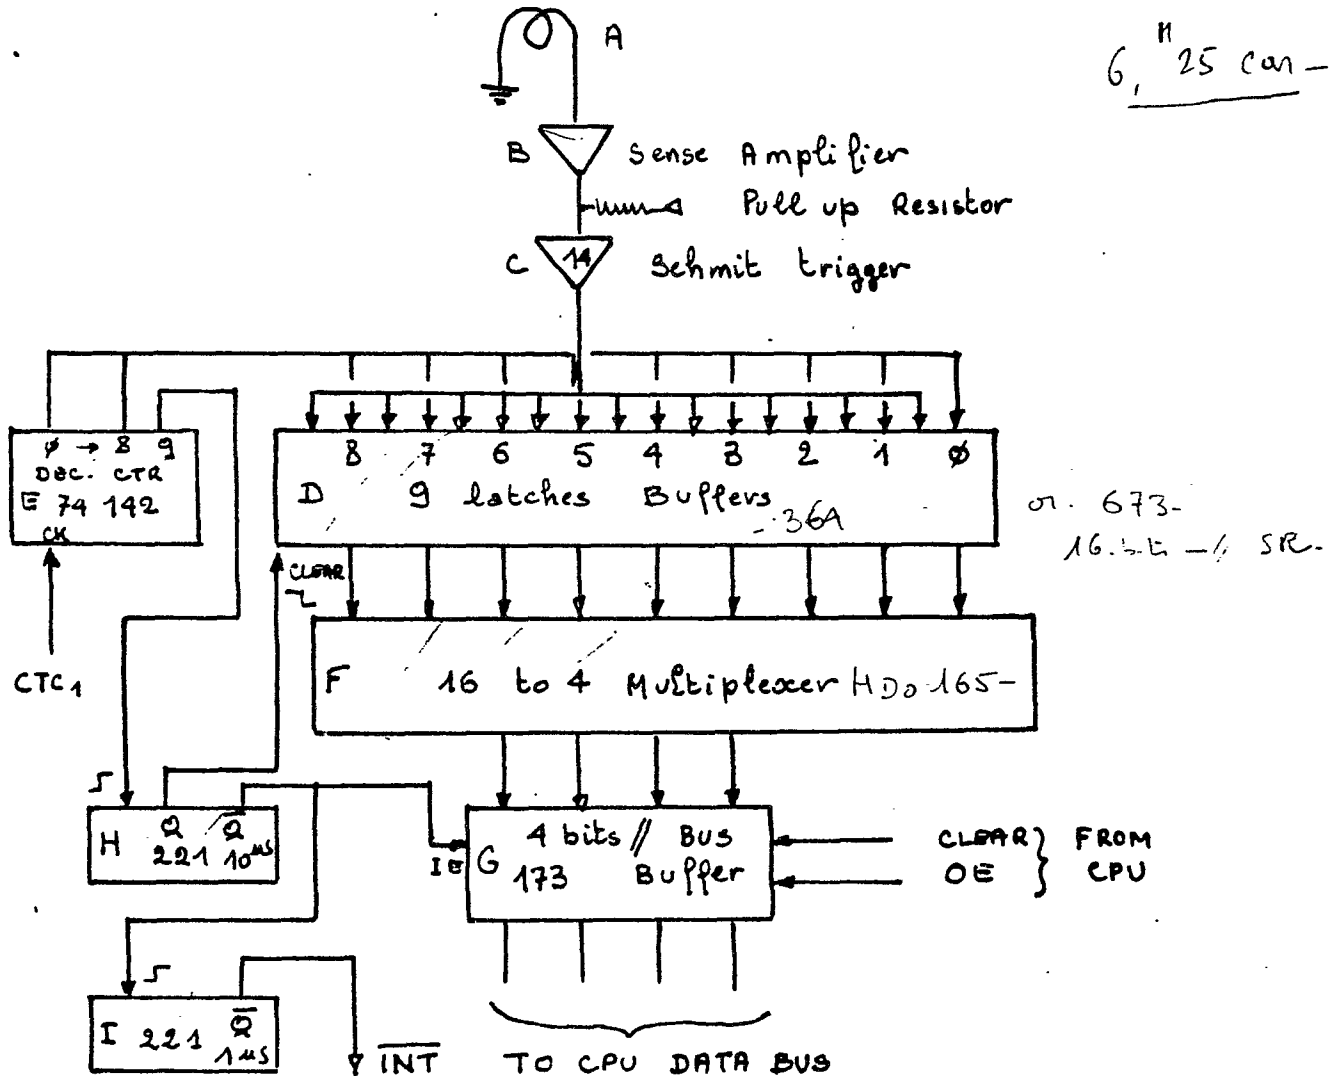 A
6, " 25 car –
B Sense Amplifier
Pull up Resistor
C 14 Schmit trigger
ø → 8 9
DEC. CTR
E 74 142
CK
8 7 6 5 4 3 2 1 ø
D 9 latches Buffers
364
or. 673-
16 bits - // SR.
CLEAR
CTC1
F 16 to 4 Multiplexer HD0 165-
H Q Q̅
221 10 µs
IE
G 4 bits // Bus
173 Buffer
CLEAR } FROM
OE } CPU
I 221 Q̅
1 µs
I̅N̅T̅
TO CPU DATA BUS